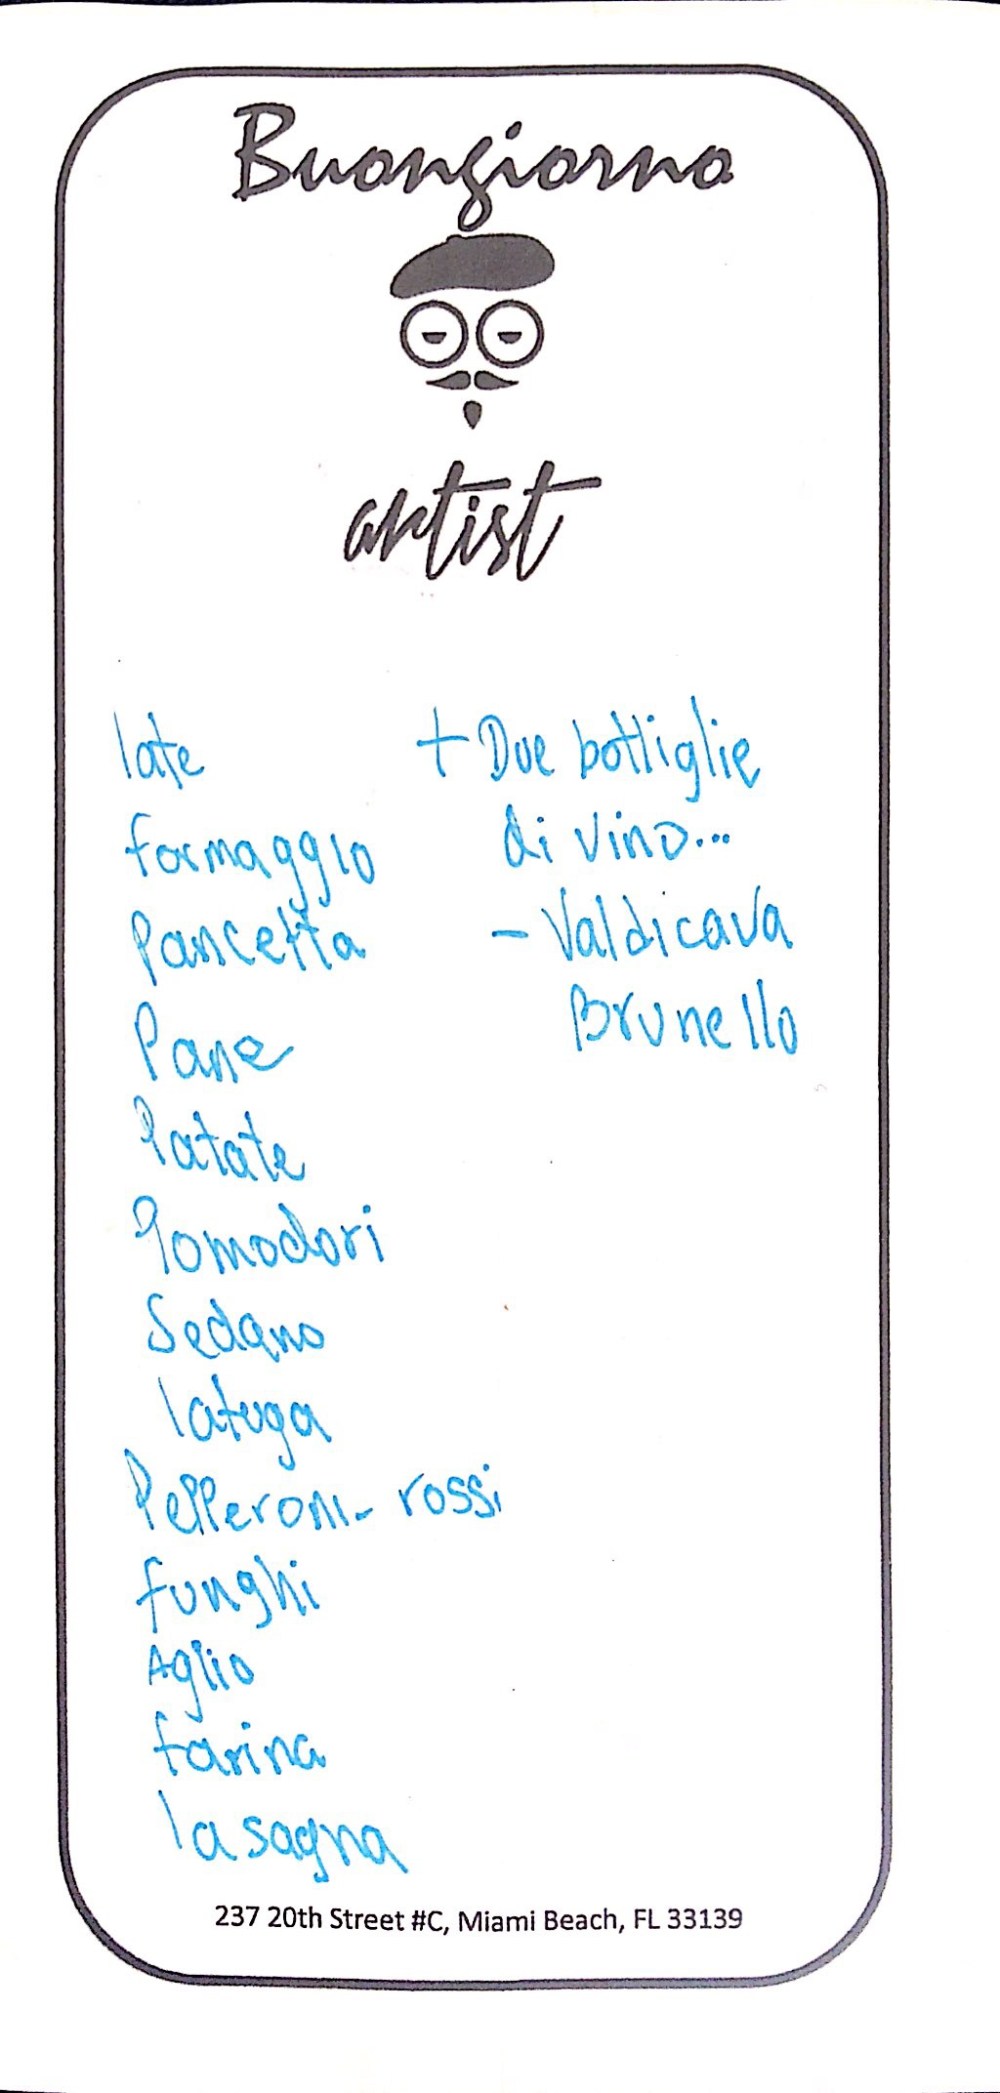 Buongiorno
artist
late
formaggio
Pancetta
Pane
Patate
Pomodori
Sedano
latuga
Pepperoni - rossi
funghi
Aglio
farina
lasagna
+ Due bottiglie
di vino...
- Valdicava
Brunello
237 20th Street #C, Miami Beach, FL 33139